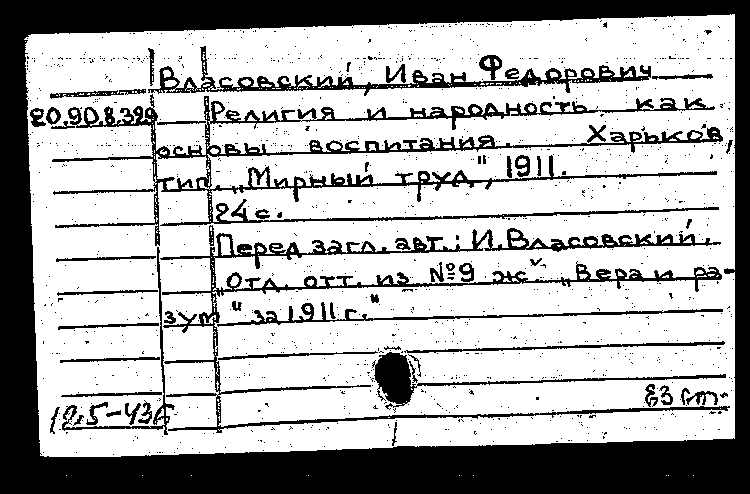 Власовский, Иван Федорович
20.90.8.329 Религия и народность как
основы воспитания. Харьков,
тип. „Мирный труд", 1911.
24 с.
Перед загл. авт.: И. Власовский.
„Отд. отт. из №9 ж. „Вера и ра-
зум" за 1911 г."
23 cm.